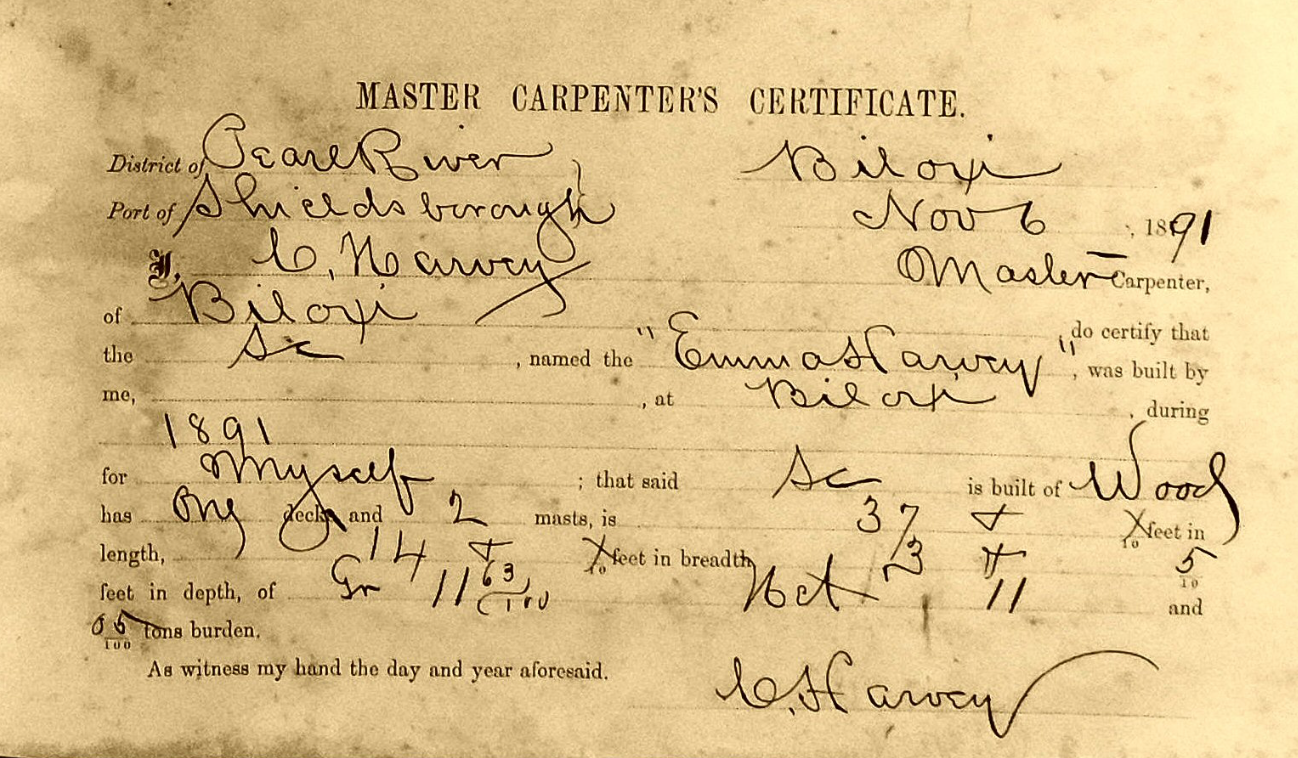 MASTER CARPENTER'S CERTIFICATE.
District of Pearl River Biloxi
Port of Shieldsborough Nov 6, 1891
I, C. Harvey Master Carpenter,
of Biloxi do certify that
the Sc, named the "Emma Harvey", was built by
me, , at Biloxi, during
1891
for Myself; that said Sc is built of Wood
has One deck, and 2 masts, is 37 + /10 feet in
length, 14 + /10 feet in breadth 3 + 5/10
feet in depth, of Gr 11 63/100 Net 11 and
05/100 tons burden.
As witness my hand the day and year aforesaid.
C. Harvey